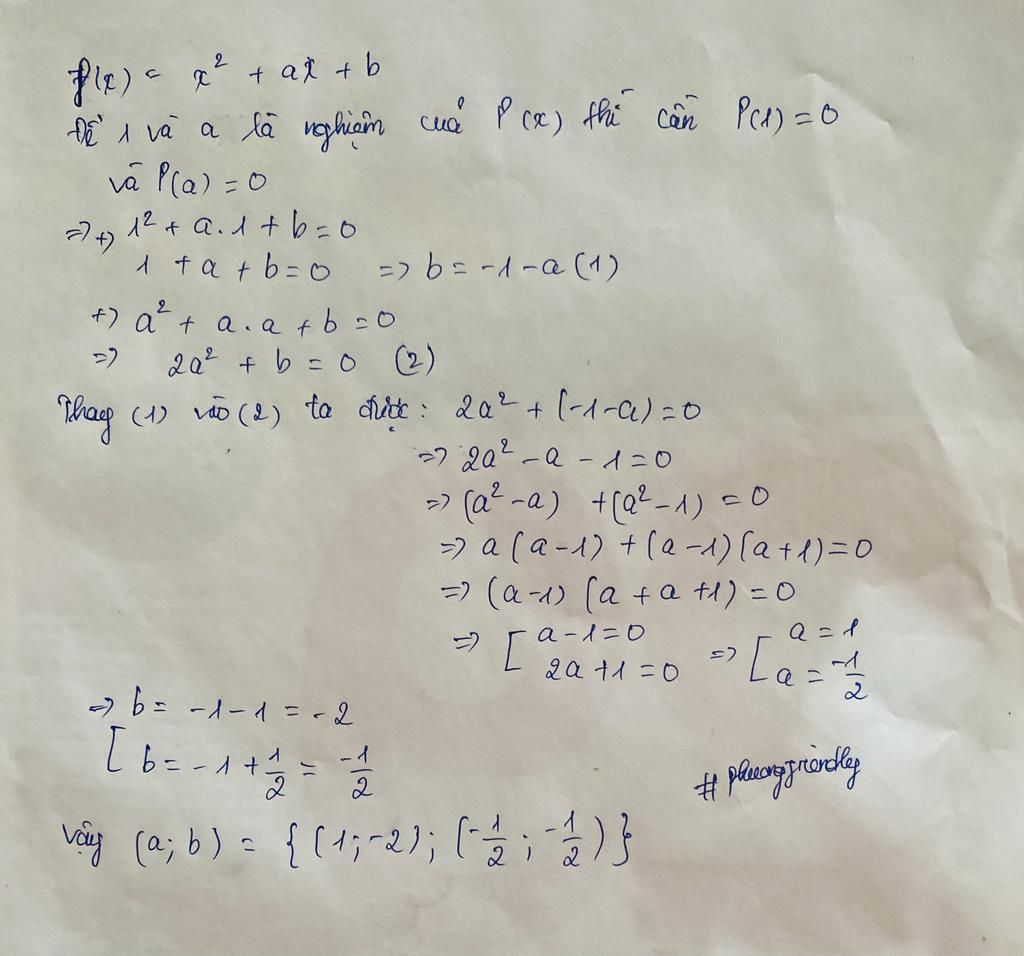 P(x) = x² + ax + b
Để 1 và a là nghiệm của P(x) thì cần P(1) = 0
và P(a) = 0
=> +) 1² + a.1 + b = 0
1 + a + b = 0 => b = -1 - a (1)
+) a² + a.a + b = 0
=> 2a² + b = 0 (2)
Thay (1) vào (2) ta được: 2a² + (-1-a) = 0
=> 2a² - a - 1 = 0
=> (a² - a) + (a² - 1) = 0
=> a(a-1) + (a-1)(a+1) = 0
=> (a-1)(a + a + 1) = 0
=> [ a-1=0 => [ a = 1
2a+1=0 a = -1/2
=> b = -1-1 = -2
[ b = -1 + 1/2 = -1/2
# phuongfriendly
Vậy (a; b) = {(1; -2); (-1/2; -1/2)}